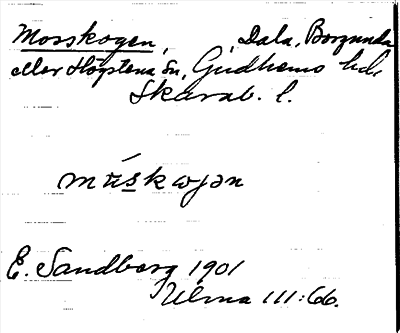 Mosskogen, , Dala, Borgunda
eller Högstena Sn, Gudhems hd,
Skarab. l.
mɯ́skωjən
E. Sandberg 1901
Ulma 111:66.